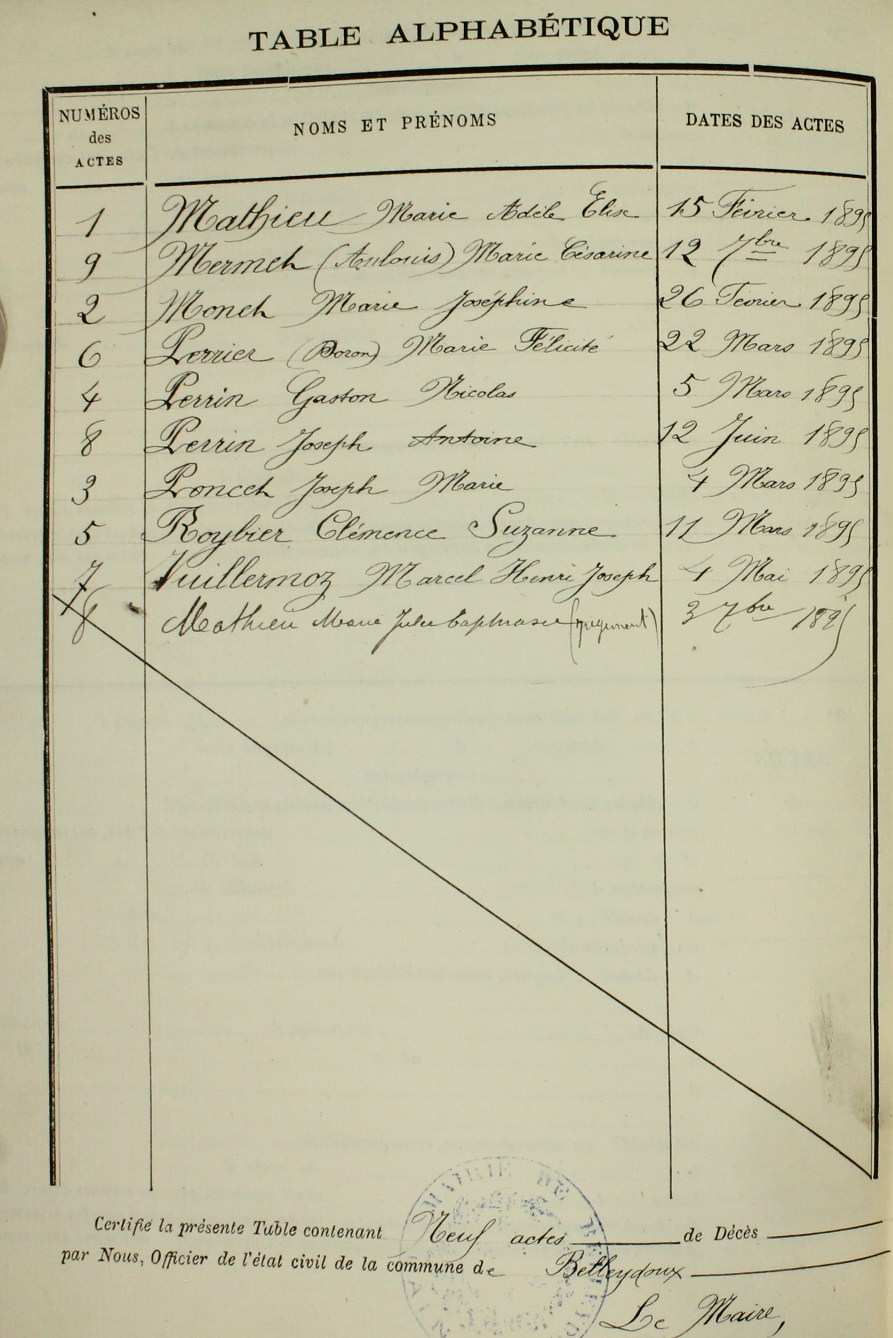 TABLE ALPHABÉTIQUE
NUMÉROS des ACTES
NOMS ET PRÉNOMS
DATES DES ACTES
1 Mathieu Marie Adèle Elise 15 Février 1895
9 Mermet (Anlouis) Marie Césarine 12 7bre 1895
2 Monet Marie Joséphine 26 Fevrier 1895
6 Perrier (Boron) Marie Félicité 22 Mars 1895
4 Perrin Gaston Nicolas 5 Mars 1895
8 Perrin Joseph Antoine 12 Juin 1895
3 Poncet Joseph Marie 4 Mars 1895
5 Roybier Clémence Suzanne 11 Mars 1895
7 Vuillermoz Marcel Henri Joseph 4 Mai 1895
8 Mathieu Marie Julie Euphrasie (jugement) 3 7bre 1895
Certifié la présente Table contenant Neuf actes de Décès
par Nous, Officier de l'état civil de la commune de Belleydoux
MAIRIE DE
Le Maire,